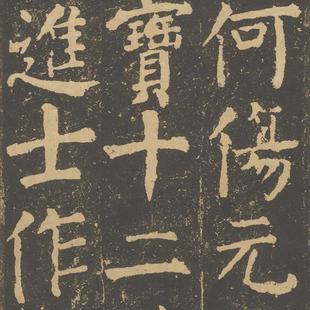 何傷元
寶十二
進士作